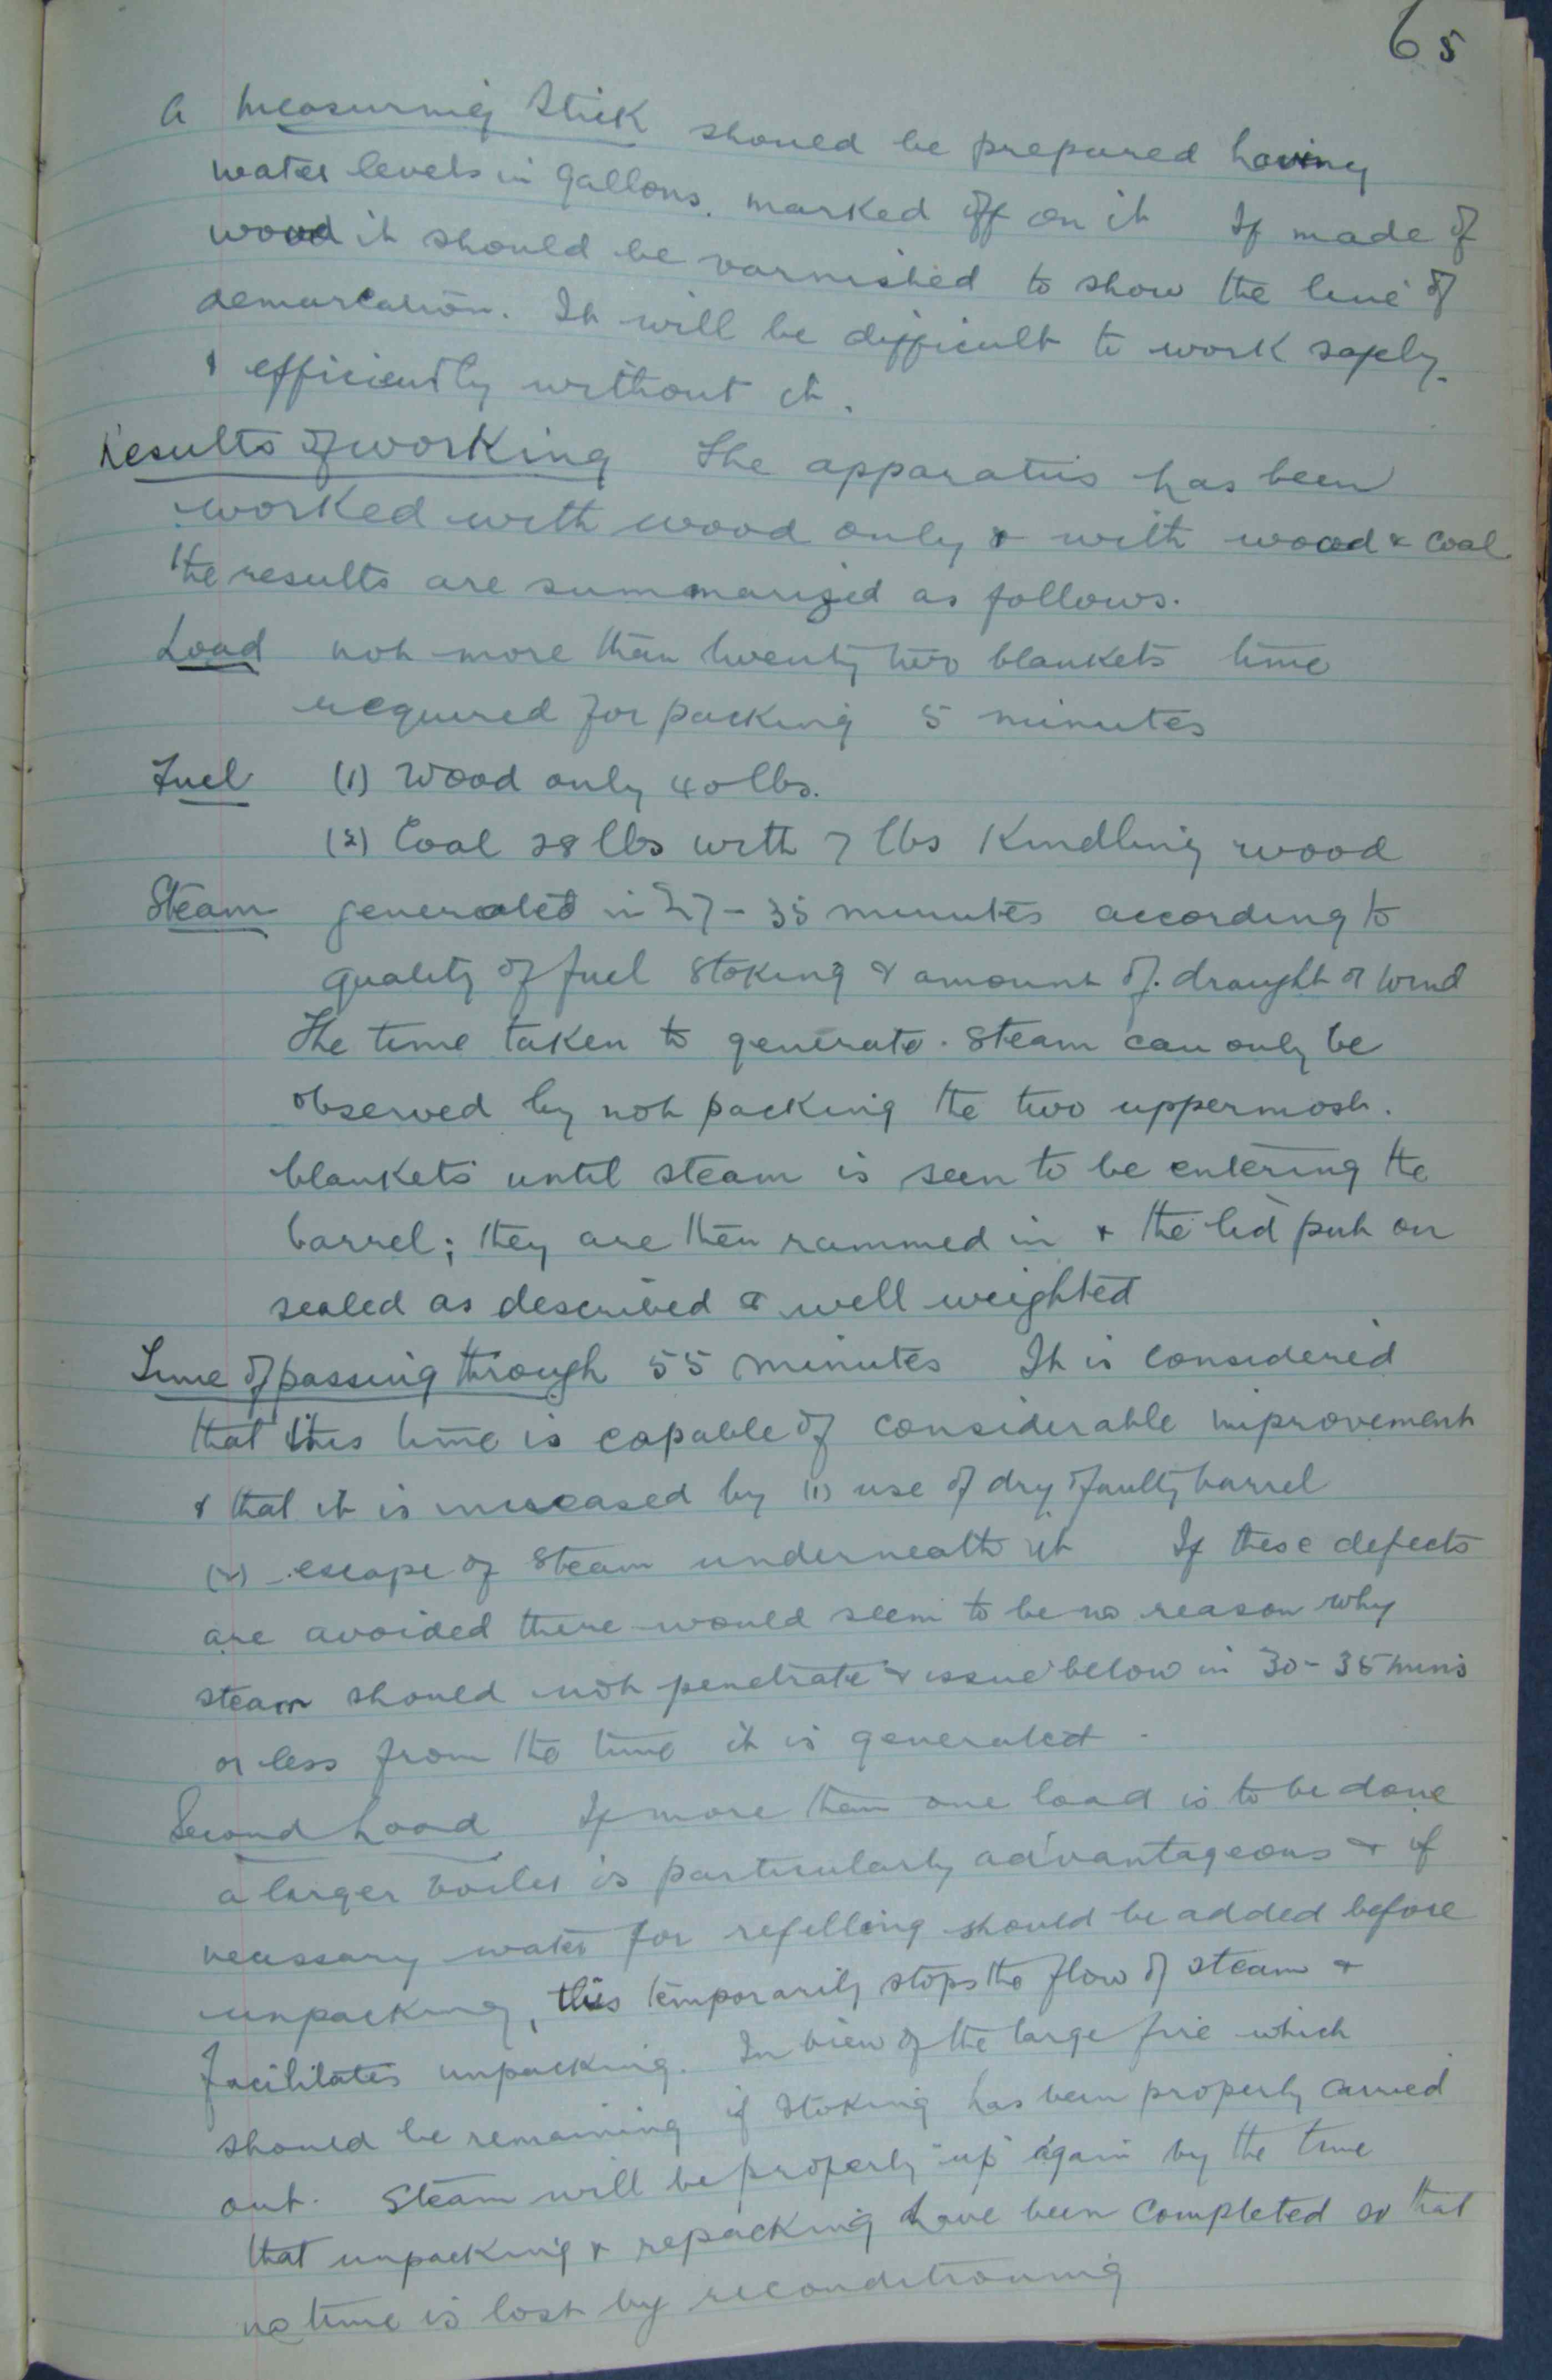 65
A measuring stick should be prepared having
water levels in gallons. marked off on it If made of
wood it should be varnished to show the line of
demarcation. It will be difficult to work safely.
& efficiently without it.
Results of working The apparatus has been
worked with wood only & with wood & coal
the results are summarized as follows.
Load not more than twenty two blankets time
required for packing 5 minutes
Fuel (1) Wood only 40 lbs.
(2) Coal 28 lbs with 7 lbs Kindling wood
Steam generated in 27 - 35 minutes according to
quality of fuel stoking & amount of. draught or wind
The time taken to generate. steam can only be
observed by not packing the two uppermost.
blankets until steam is seen to be entering the
barrel; they are then rammed in & the lid put on
sealed as described & well weighted
Time of passing through 55 minutes It is considered
that this time is capable of considerable improvement
& that it is increased by (1) use of dry faulty barrel
(2) escape of steam underneath it If these defects
are avoided there would seem to be no reason why
steam should not penetrate & issue below in 30 - 35 mins
or less from the time it is generated
Second Load If more than one load is to be done
a larger boiler is particularly advantageous & if
necessary water for refilling should be added before
unpacking, this temporarily stops the flow of steam &
facilitates unpacking. In view of the large fire which
should be remaining if stoking has been properly carried
out. Steam will be properly "up" again by the time
that unpacking & repacking have been completed so that
no time is lost by reconditioning